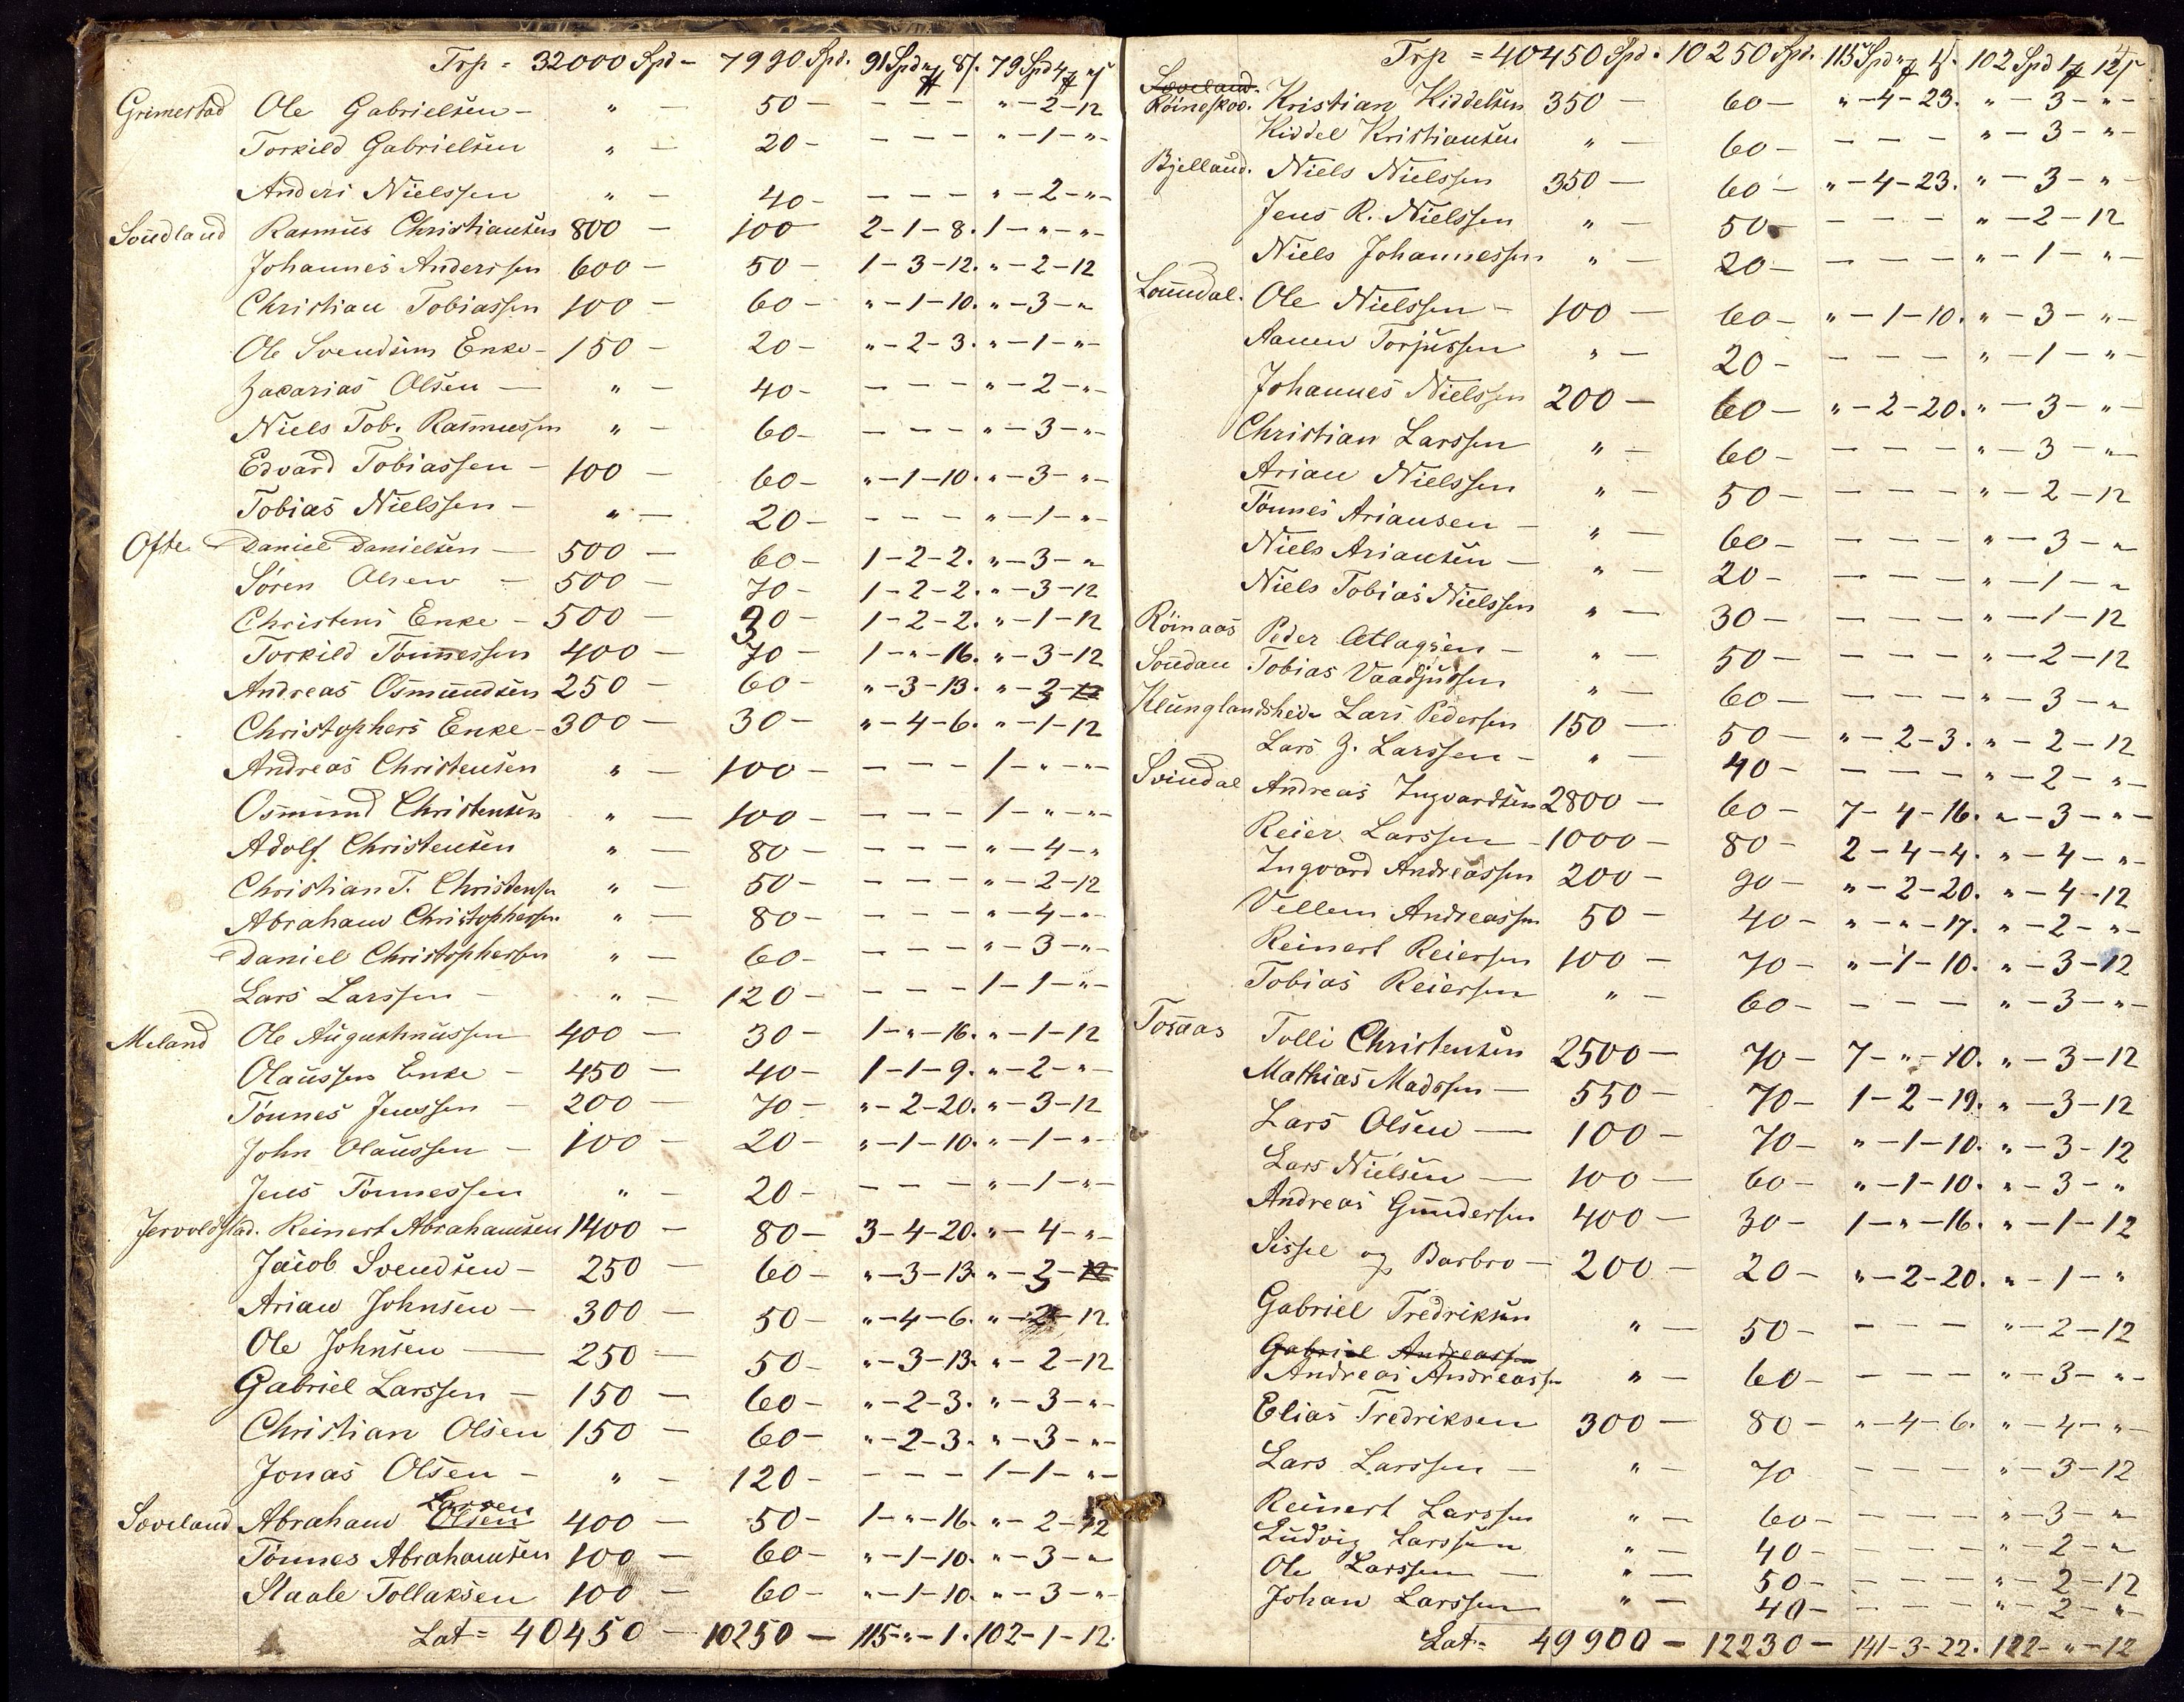 Trp = 32000 Spd - 7990 Spd. 91 Spd " 8/. 79 Spd 4 "/
Grimestad Ole Gabrielsen - " - 50 - - - - " - 2 - 12
Torkild Gabrielsen " - 20 - - - - " - 1 - " -
Anders Nielssen " - 40 - - - - " - 2 - " -
Soudland Rasmus Christiansen 800 - 100 2 - 1 - 8. 1 - " - " -
Johannes Anderssen 600 - 50 - 1 - 3 - 12. " - 2 - 12
Christian Tobiassen 100 - 60 - " - 1 - 10. " - 3 - "
Ole Svendsens Enke - 150 - 20 - " - 2 - 3. " - 1 - " -
Zacarias Olsen - " - 40 - - - - " - 2 - " -
Niels Tob. Rasmussen " - 60 - - - - " - 3 - " -
Edvard Tobiassen - 100 - 60 - " - 1 - 10. " - 3 - " -
Tobias Nielssen - " - 20 - - - - " - 1 - " -
Ofte Daniel Danielsen - 500 - 60 - 1 - 2 - 2. " - 3 - "
Søren Olsen - 500 - 70 - 1 - 2 - 2. " - 3 - 12
Christens Enke - 500 - 30 - 1 - 2 - 2. " - 1 - 12
Torkild Tønnessen 400 - 70 - 1 - " - 16. " - 3 - 12
Andreas Osmundsen 250 - 60 - " - 3 - 13. " - 3 - 12
Christophers Enke - 300 - 30 - " - 4 - 6. " - 1 - 12
Andreas Christensen " - 100 - - - - 1 - " - " -
Osmund Christensen " - 100 - - - - 1 - " - " -
Adolf Christensen " - 80 - - - - " - 4 - "
Christian T. Christensen " - 50 - - - - " - 2 - 12
Abraham Christophersen " - 80 - - - - " - 4 - "
Daniel Christophersen " - 60 - - - - " - 3 - " -
Lars Larssen - " - 120 - - - - 1 - 1 - " -
Meland Ole Augustinussen 400 - 30 - 1 - " - 16. " - 1 - 12
Olaussens Enke - 450 - 40 - 1 - 1 - 9. " - 2 - " -
Tønnes Jenssen - 200 - 70 - " - 2 - 20. " - 3 - 12
John Olaussen - 100 - 20 - " - 1 - 10. " - 1 - " -
Jens Tønnessen " - 20 - - - - " - 1 - " -
Jervoldstad. Reinert Abrahamsen 1400 - 80 - 3 - 4 - 20. " - 4 - " -
Jacob Svendsen - 250 - 60 - " - 3 - 13. " - 3 - 12
Arian Johnsen - 300 - 50 - " - 4 - 6. " - 2 - 12.
Ole Johnsen - 250 - 50 - " - 3 - 13. " - 2 - 12
Gabriel Larssen - 150 - 60 - " - 2 - 3. " - 3 - " -
Christian Olsen 150 - 60 - " - 2 - 3. " - 3 - " -
Jonas Olsen - " - 120 - - - - 1 - 1 - " -
Larsen
Søveland Abraham Olsen 400 - 50 - 1 - " - 16. " - 2 - 12
Tønnes Abrahamsen 100 - 60 - " - 1 - 10. " - 3 - "
Staale Tollaksen 100 - 60 - " - 1 - 10. " - 3 - " -
Lat = 40450 - 10250 - 115 - " - 1. 102 - 1 - 12.
Trp = 40450 Spd. 10250 Spd. 115 Spd " 1/. 102 Spd 1 12/
Søveland.
Röingskov. Kristian Kiddelsen 350 - 60 - " - 4 - 23. " - 3 - " -
Kiddel Kristiansen " - 60 - - - - " - 3 - " -
Bjelland. Niels Nielssen 350 - 60 - " - 4 - 23. " - 3 - " -
Jens R. Nielssen " - 50 - - - - " - 2 - 12
Niels Johannessen " - 20 - - - - " - 1 - " -
Loundal. Ole Nielssen - 100 - 60 - " - 1 - 10. " - 3 - " -
Aanen Torjussen " - 20 - - - - " - 1 - " -
Johannes Nielssen 200 - 60 - " - 2 - 20. " - 3 - " -
Christian Larssen " - 60 - - - - " - 3 - "
Arian Nielssen " - 50 - - - - " - 2 - 12
Tønnes Ariansen - " - 60 - - - - " - 3 - "
Niels Ariansen - " - 20 - - - - " - 1 - "
Niels Tobias Nielssen " - 30 - - - - " - 1 - 12
Röinaas Peder Atlagsen - " - 50 - - - - " - 2 - 12
Soudan Tobias Vaadjussen " - 60 - - - - " - 3 - "
Klunglandsheia Lars Pedersen 150 - 50 - " - 2 - 3. " - 2 - 12
Lars Z. Larssen - " - 40 - - - - " - 2 - " -
Svindal Andreas Ingvardsen 2800 - 60 - 7 - 4 - 16. " - 3 - " -
Reier Larssen - 1000 - 80 - 2 - 4 - 4. " - 4 - " -
Ingvard Andreassen 200 - 90 - " - 2 - 20. " - 4 - 12
Vellem Andreassen 50 - 40 - " - " - 17. " - 2 - " -
Reinert Reiersen 100 - 70 - " - 1 - 10. " - 3 - 12
Tobias Reiersen " - 60 - - - - " - 3 - " -
Tosaas Tolli Christensen 2500 - 70 - 7 - " - 10. " - 3 - 12
Mathias Madssen - 550 - 70 - 1 - 2 - 19. " - 3 - 12
Lars Olsen - 100 - 70 - " - 1 - 10. " - 3 - 12
Lars Nielsen - 100 - 60 - " - 1 - 10. " - 3 - "
Andreas Gundersen 400 - 30 - 1 - " - 16. " - 1 - 12
Sissel og Barbro - 200 - 20 - " - 2 - 20. " - 1 - "
Gabriel Fredriksen " - 50 - - - - " - 2 - 12
Gabriel Andreassen
Andreas Andreassen " - 60 - - - - " - 3 - " -
Elias Fredriksen 300 - 80 - " - 4 - 6. " - 4 - " -
Lars Larssen - " - 70 - - - " - 3 - 12
Reinert Larssen " - 60 - - - - " - 3 - "
Ludvig Larssen " - 40 - - - - " - 2 - "
Ole Larssen - " - 50 - - - - " - 2 - 12
Johan Larssen " - 40 - - - - " - 2 - "
Lat = 49900 - 12230 - 141 - 3 - 22. 122 - " - 12